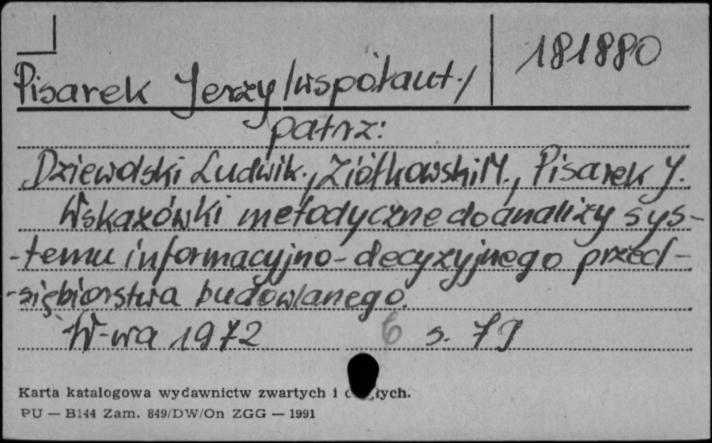 181880
Pisarek Jerzy /współaut./
patrz:
Dziewolski Ludwik., Ziółkowski M., Pisarek J.
Wskazówki metodyczne do analizy sys-
-temu informacyjno-decyzyjnego przed-
-siębiorstwa budowlanego.
W-wa 1972 6 s. 79
Karta katalogowa wydawnictw zwartych i ciągłych.
PU — B144 Zam. 849/DW/On ZGG — 1991